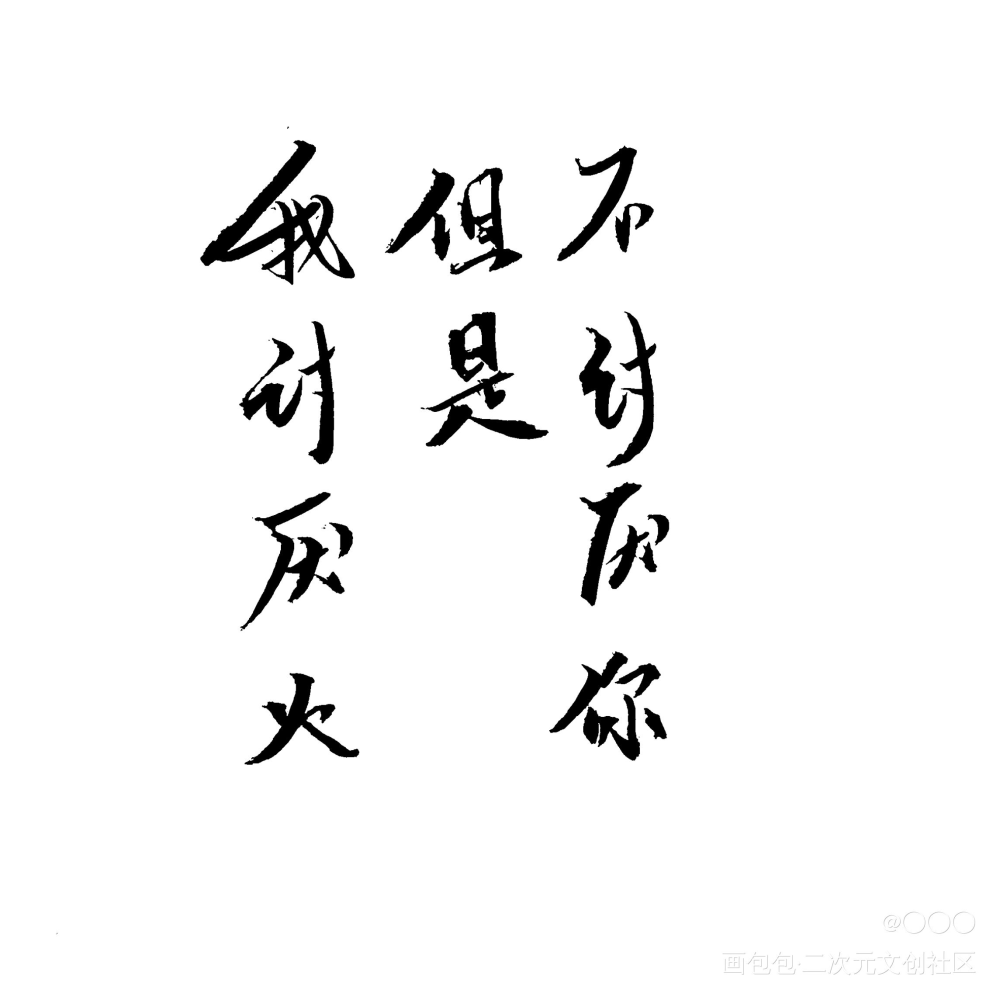 我讨厌火
但是
不讨厌你
@○○○
画包包·二次元文创社区